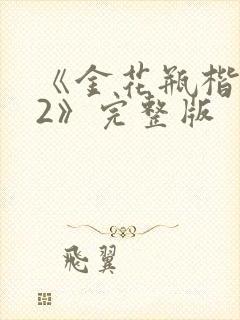 《金花瓶楷
2》完整版
飛翼